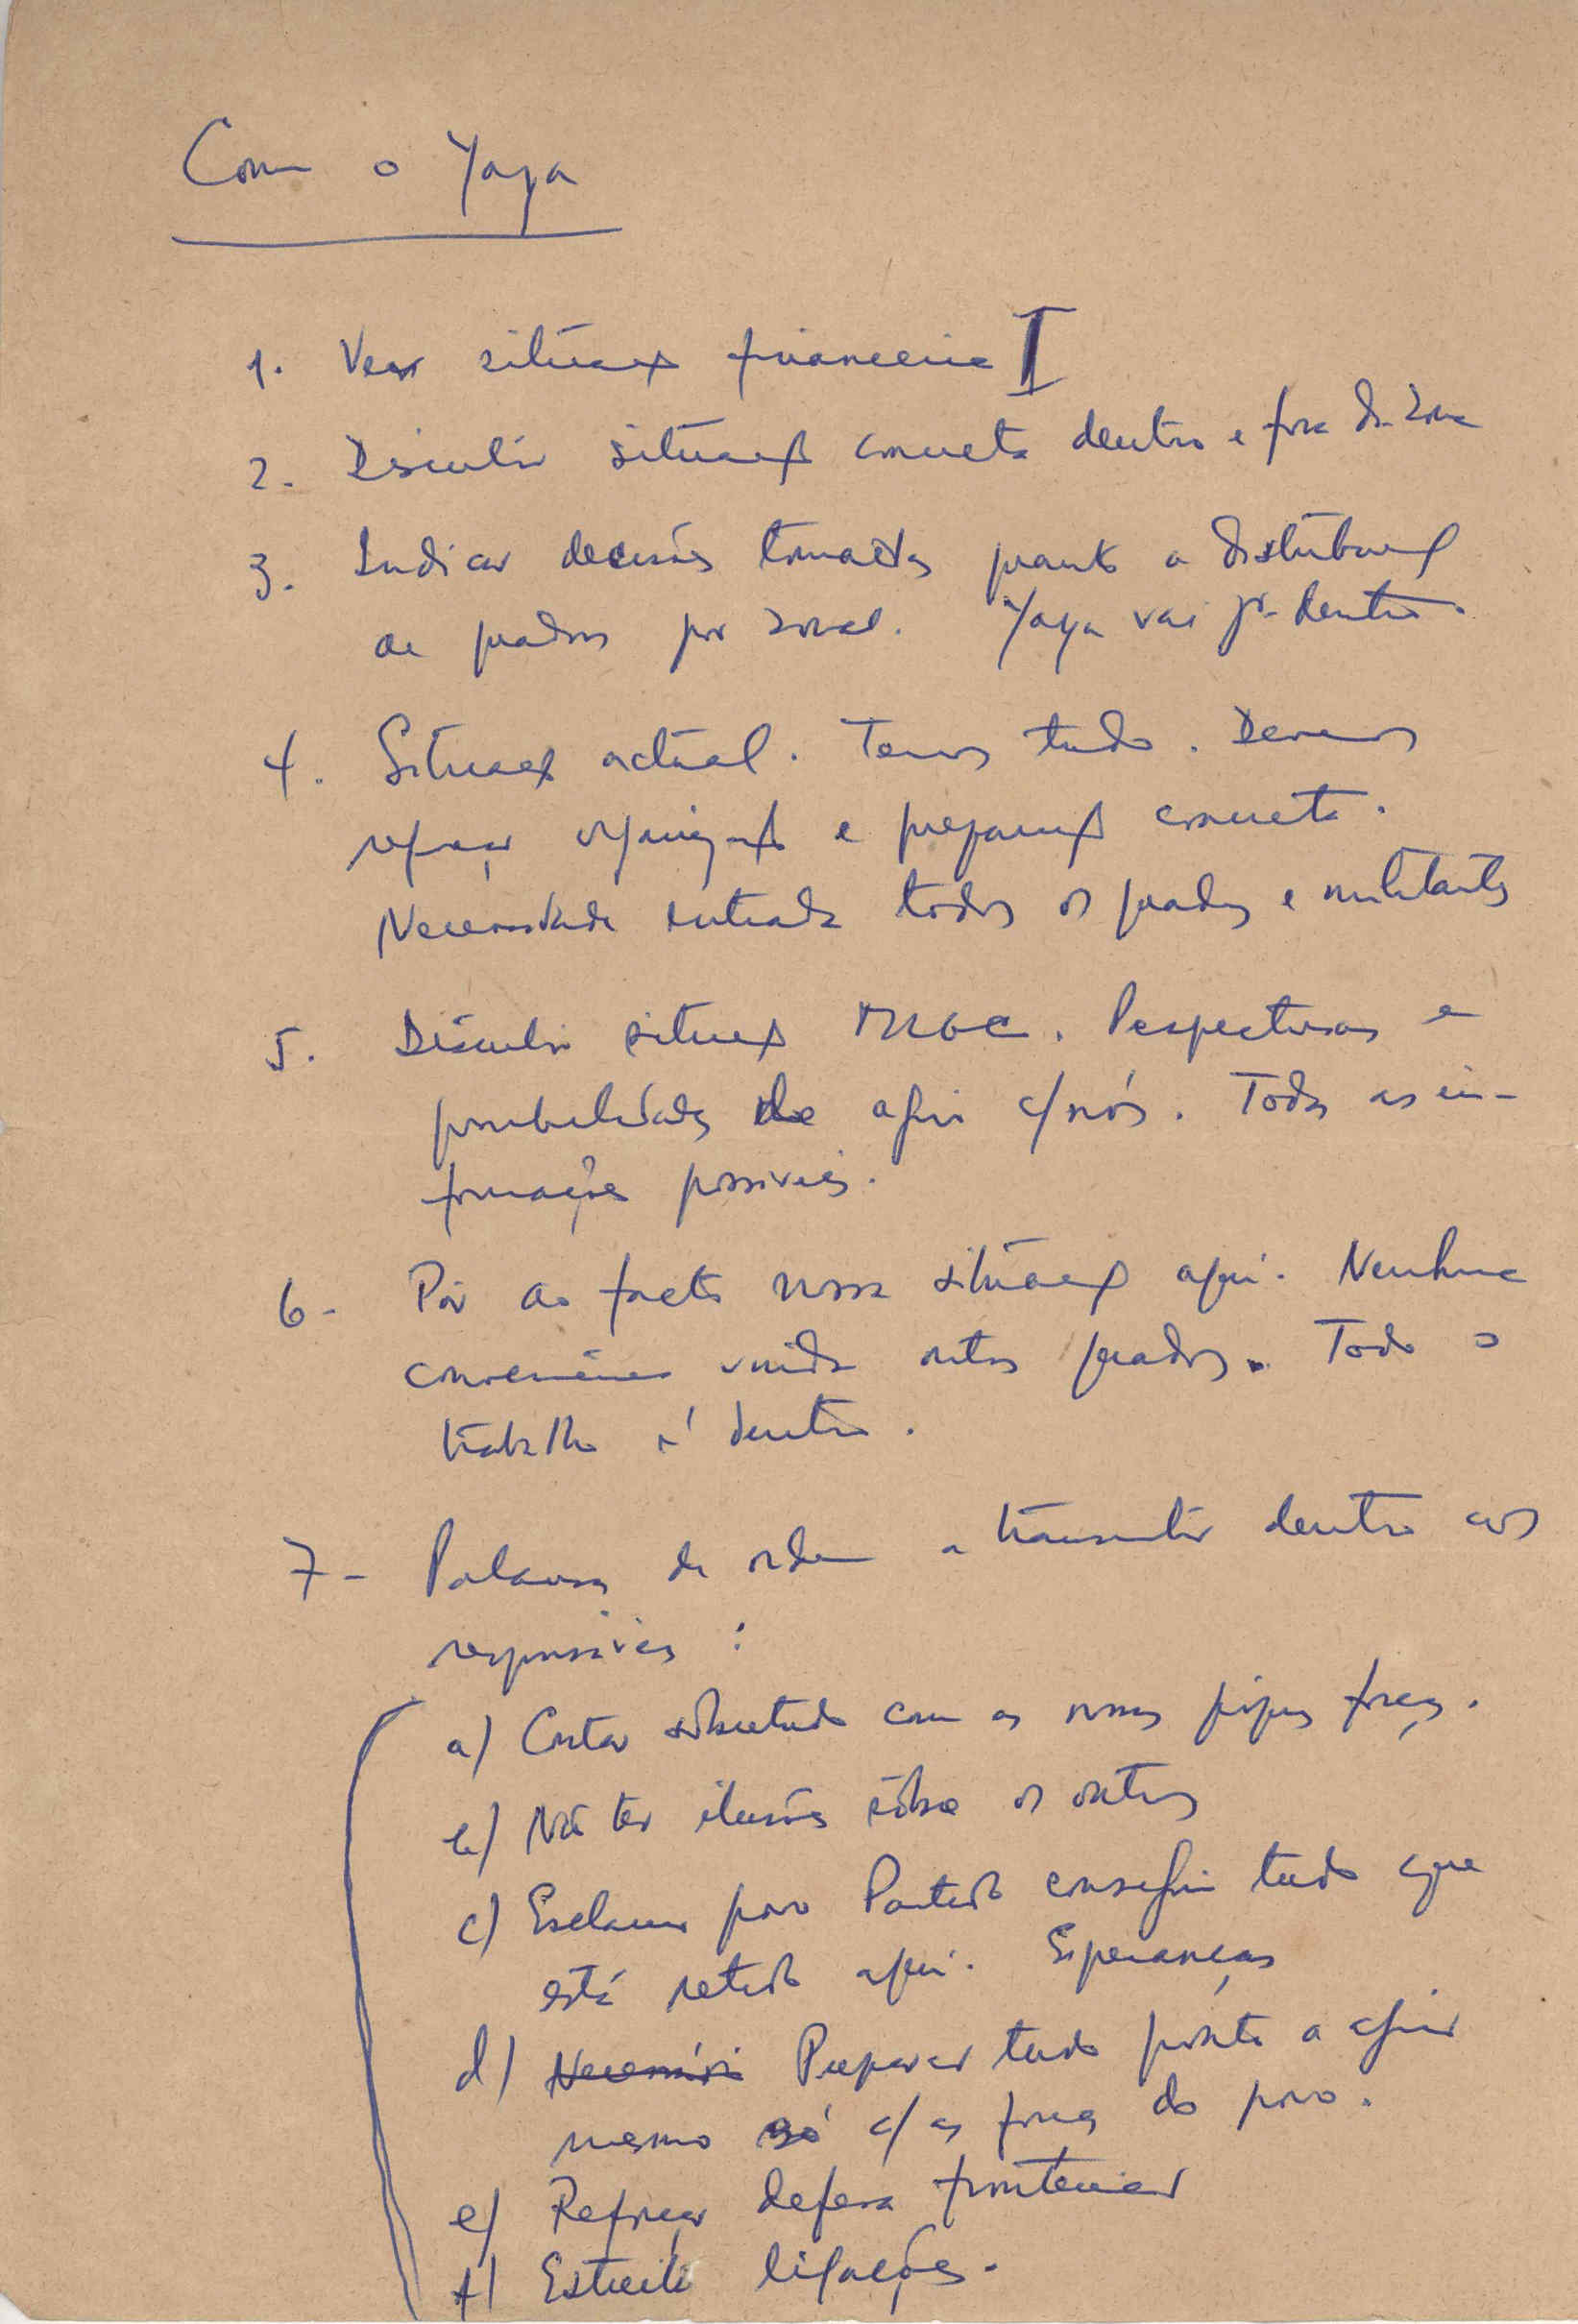 Com o Yaya
1. Ver situação financeira I
2. Discutir situação concreta dentro e fora da zona
3. Indicar decisões tomadas quanto a distribuição
de quadros por zonas. Yaya vai pª dentro.
4. Situação actual. Temos tudo. Devemos
reforçar organização e preparação concreta.
Necessidade entrada todos os quadros e militantes
5. Discutir situação MLGC. Perspectivas e
possibilidades de agir c/nós. Todas as in-
formações possíveis.
6- Pôr ao facto nossa situação aqui. Nenhuma
conveniência vinda outros quadros. Todo o
trabalho é dentro.
7- Palavras de ordem a transmitir dentro aos
responsáveis :
a) Contar sobretudo com as nossas próprias forças.
b) Não ter ilusões sôbre os outros
c) Esclarecer povo Partido conseguir tudo que
está retido aqui. Esperanças
d) Necessário Preparar tudo pronto a agir
mesmo só c/ as forças do povo.
e) Reforçar defesa fronteiras
f) Estreitar ligações.